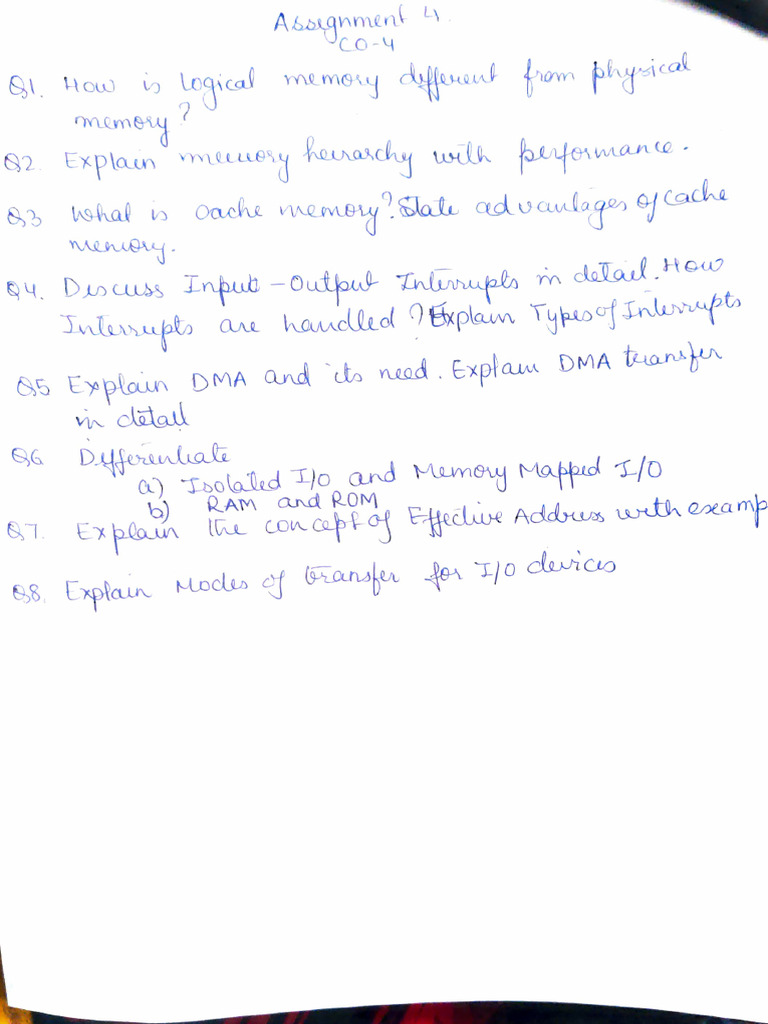 Assignment 4.
CO-4
Q1. How is Logical memory different from physical
memory?
Q2. Explain memory heirarchy with performance.
Q3 What is Cache memory? State advantages of cache
memory.
Q4. Discuss Input-Output Interrupts in detail. How
Interrupts are handled? Explain Types of Interrupts
Q5 Explain DMA and its need. Explain DMA transfer
in detail
Q6 Differentiate
a) Isolated I/O and Memory Mapped I/O
b) RAM and ROM
Q7. Explain the concept of Effective Address with examp
Q8. Explain Modes of transfer for I/O devices